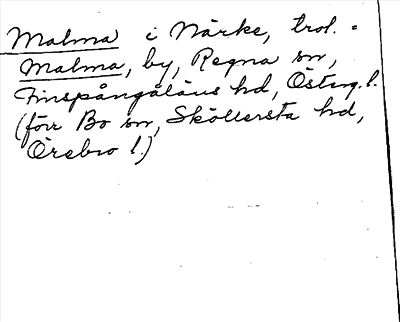 Malma i Närke, trol. =
Malma, by, Regna sn,
Finspångaläns hd, Österg. l.
(förr Bo sn, Sköllersta hd,
Örebro l.)